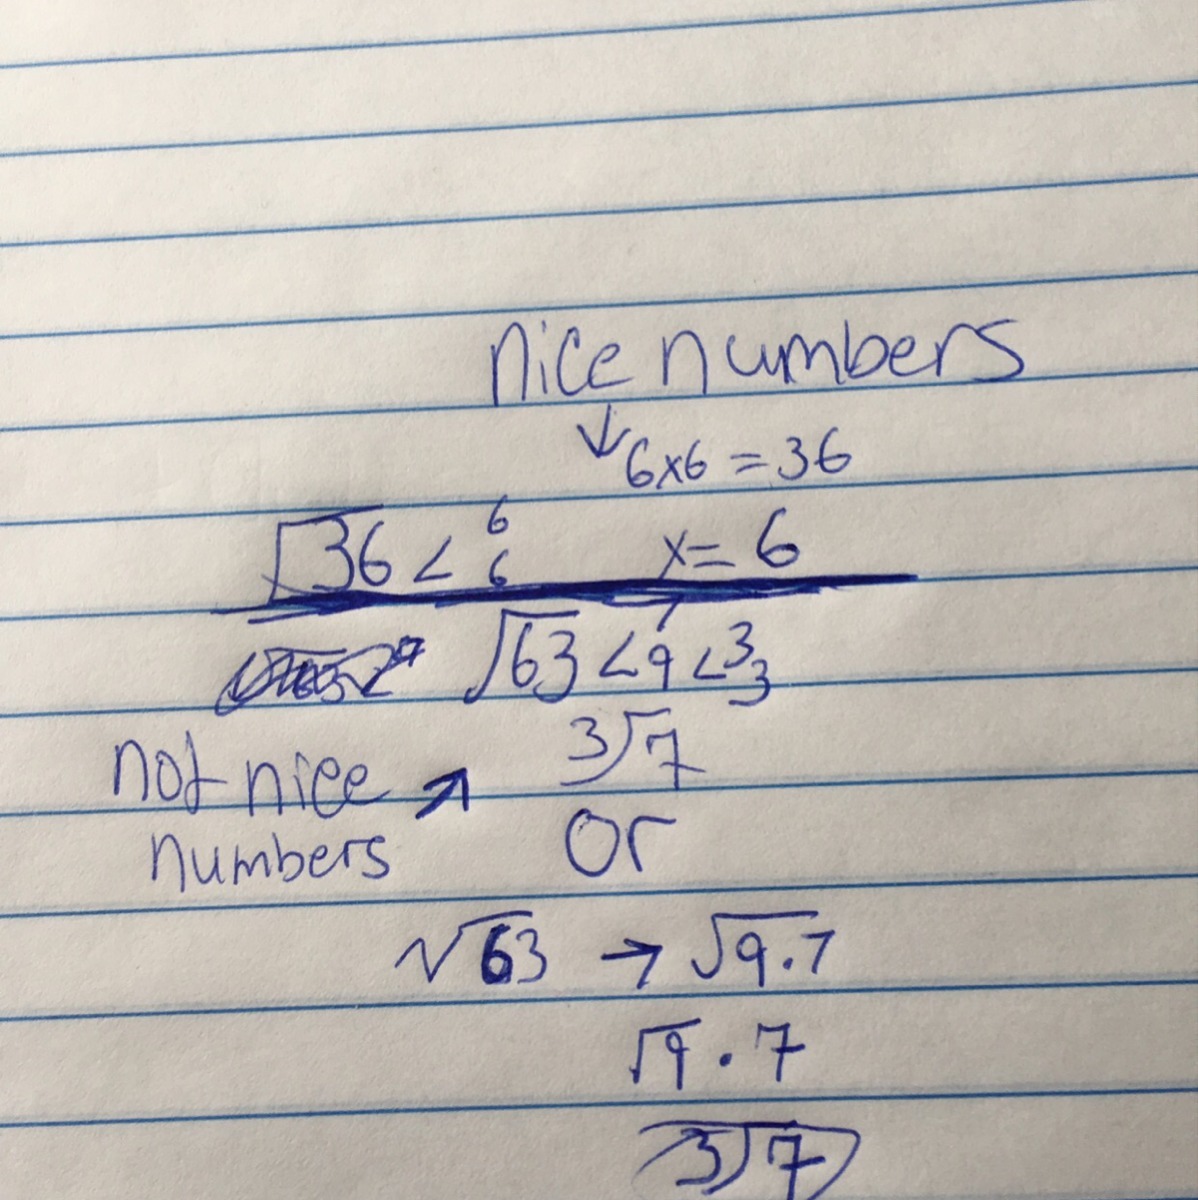 nice numbers
↓ 6x6 = 36
√36 < 6 6 x = 6
√63 < 7 9 < 3 3
not nice numbers ↗ 3√7
or
√63 → √9.7
√9 . 7
3√7